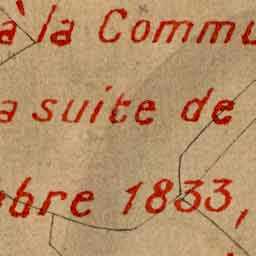 à la Commu
a suite de
bre 1833,